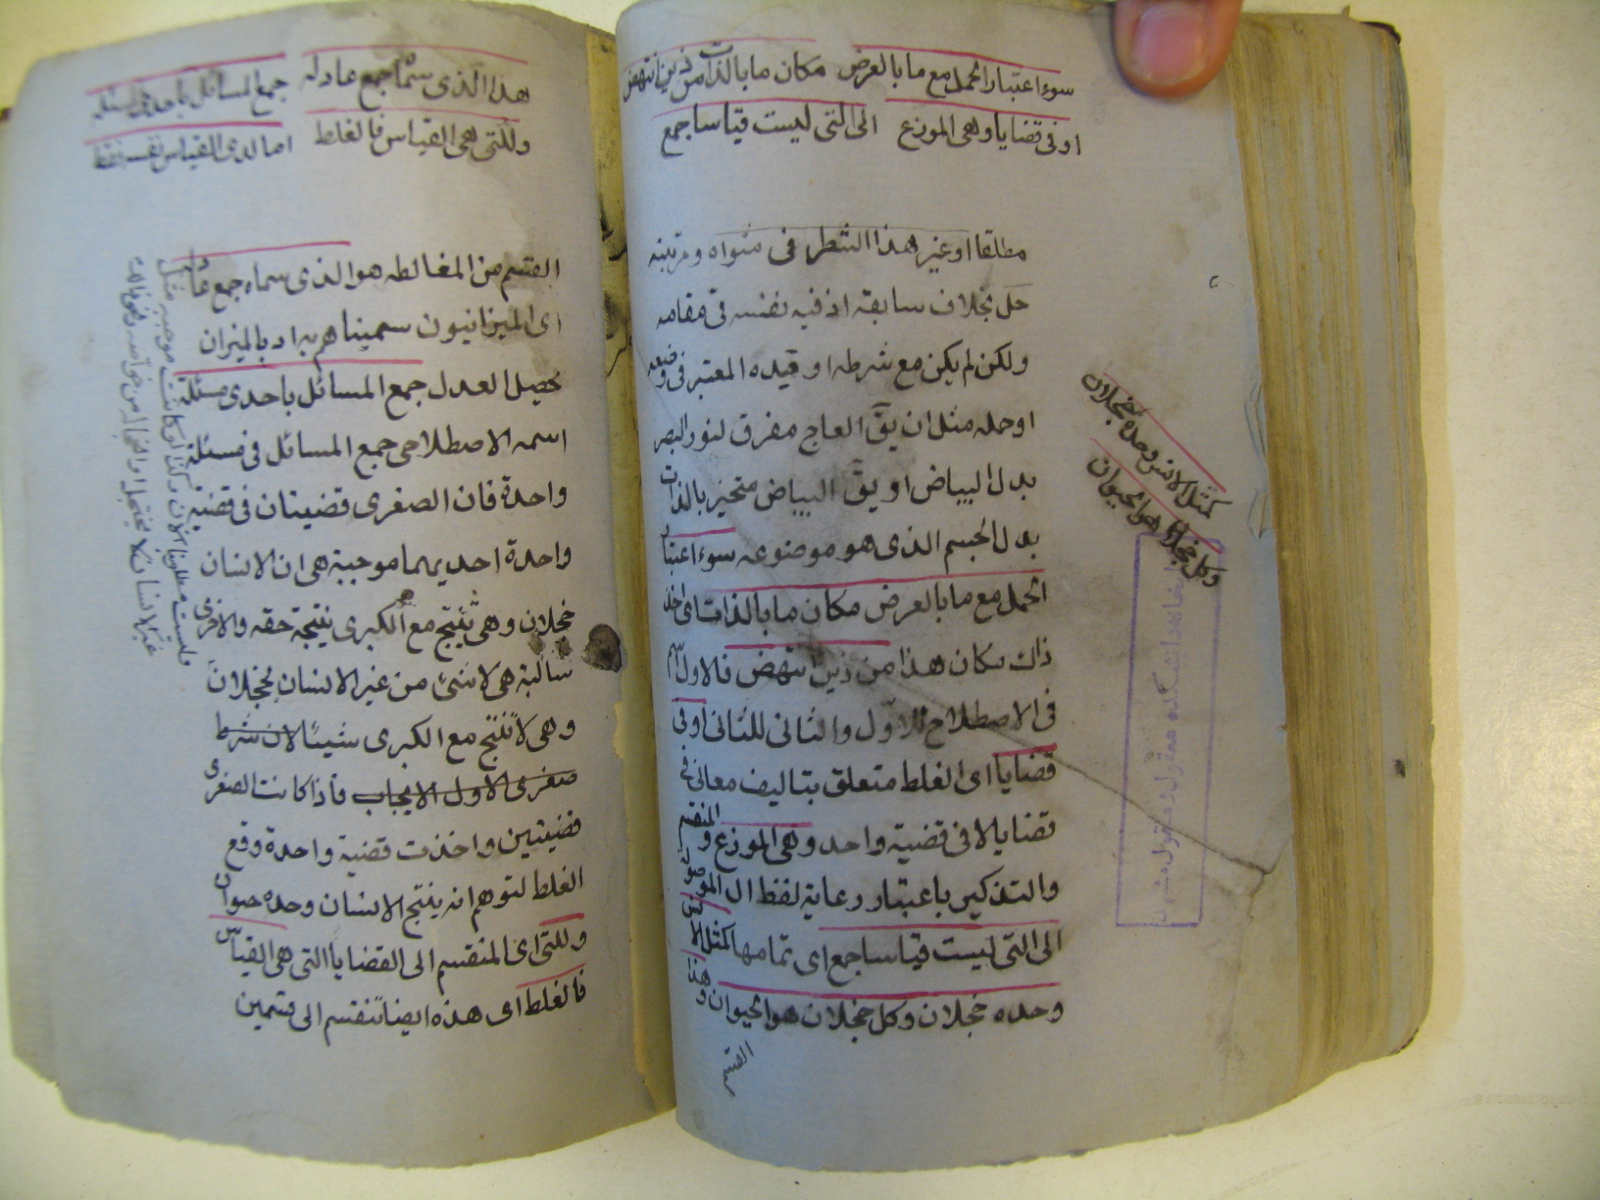 سوء اعتبار الحمل مع ما بالعرض مكان ما بالذات من ذين انتهض
او فى قضايا وهى الموزع الى التى ليست قياسا جمع
مطلقا او غير هذا الشطر فى مثواه ومرتبته
حل بخلاف سابقه اذ فيه نفسه فى مقامه
ولكن لم يكن مع شرطه او قيده المعتبر فى وضعه
او حمله مثل ان يق العاج مفرق لنور البصر
بدل البياض او يق البياض متحيز بالذات
بدل الجسم الذى هو موضوعه سوء اعتبار
الحمل مع ما بالعرض مكان ما بالذات اى اخذ
ذاك مكان هذا من ذين انتهض فالاول اسم
فى الاصطلاح للاول والثانى للثانى او فى
قضايا اى الغلط متعلق بتاليف معانى فى
قضايا لا فى قضية واحد وهى الموزع والمنقسم
والتذكير باعتبار رعاية لفظ ال الموصولة
الى التى ليست قياسا جمع اى تمامها كمثل الانس
وحده خجلان وكل خجلان هو الحيوان وهذا
القسم
كمثل الانس وحده خجلان
وكل خجلان هو الحيوان
هذا الذى سما جمع عادله جمع المسائل باحدى مسئله
وللتى هى القياس فالغلط اما لدى القياس نفسه فقط
القسم من المغالطه هو الذى سماه جمع عادله
اى الميزانيون سميناهم به اذ بالميزان
يحصل العدل جمع المسائل باحدى مسئلة
اسمه الاصطلاحى جمع المسائل فى مسئلة
واحدة فان الصغرى قضيتان فى قضية
واحدة احديهما موجبة هى ان الانسان
خجلان وهى تنتج مع الكبرى نتيجة حقه والاخرى
سالبة هى لا شئ من غير الانسان بخجلان
وهى لا تنتج مع الكبرى شيئا لان شرط
صغرى الاول الايجاب فاذا كانت الصغرى
قضيتين واخذت قضية واحدة وقع
الغلط لتوهم انه ينتج الانسان وحده حيوان
وللتى اى المنقسم الى القضايا التى هى القياس
فالغلط اى هذه ايضا تنقسم الى قسمين